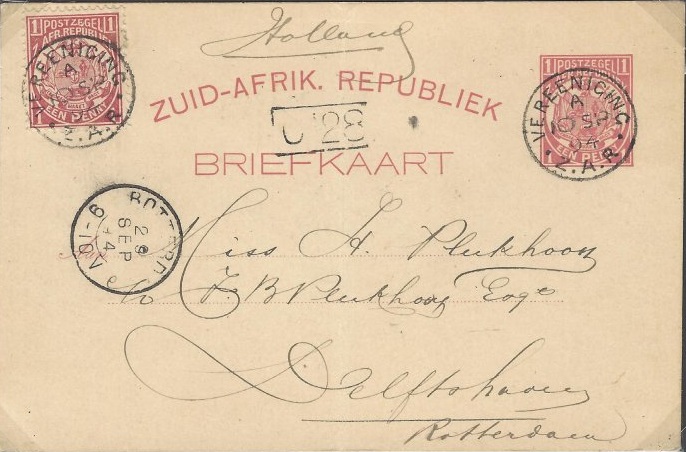 Holland
1 POSTZEGEL 1
AFR. REPUBLIEK
EEN PENNY
VEREENIGING
A
10 SP
Z.A.R.
ZUID-AFRIK. REPUBLIEK
28
BRIEFKAART
1 POSTZEGEL 1
EEN PENNY
VEREENIGING
A
10 SP
94
Z.A.R.
29
SEP
94
9-10V
Miss H. Plukhooy
c/o J. B Plukhooy Esqre
Delftshaven
Rotterdam